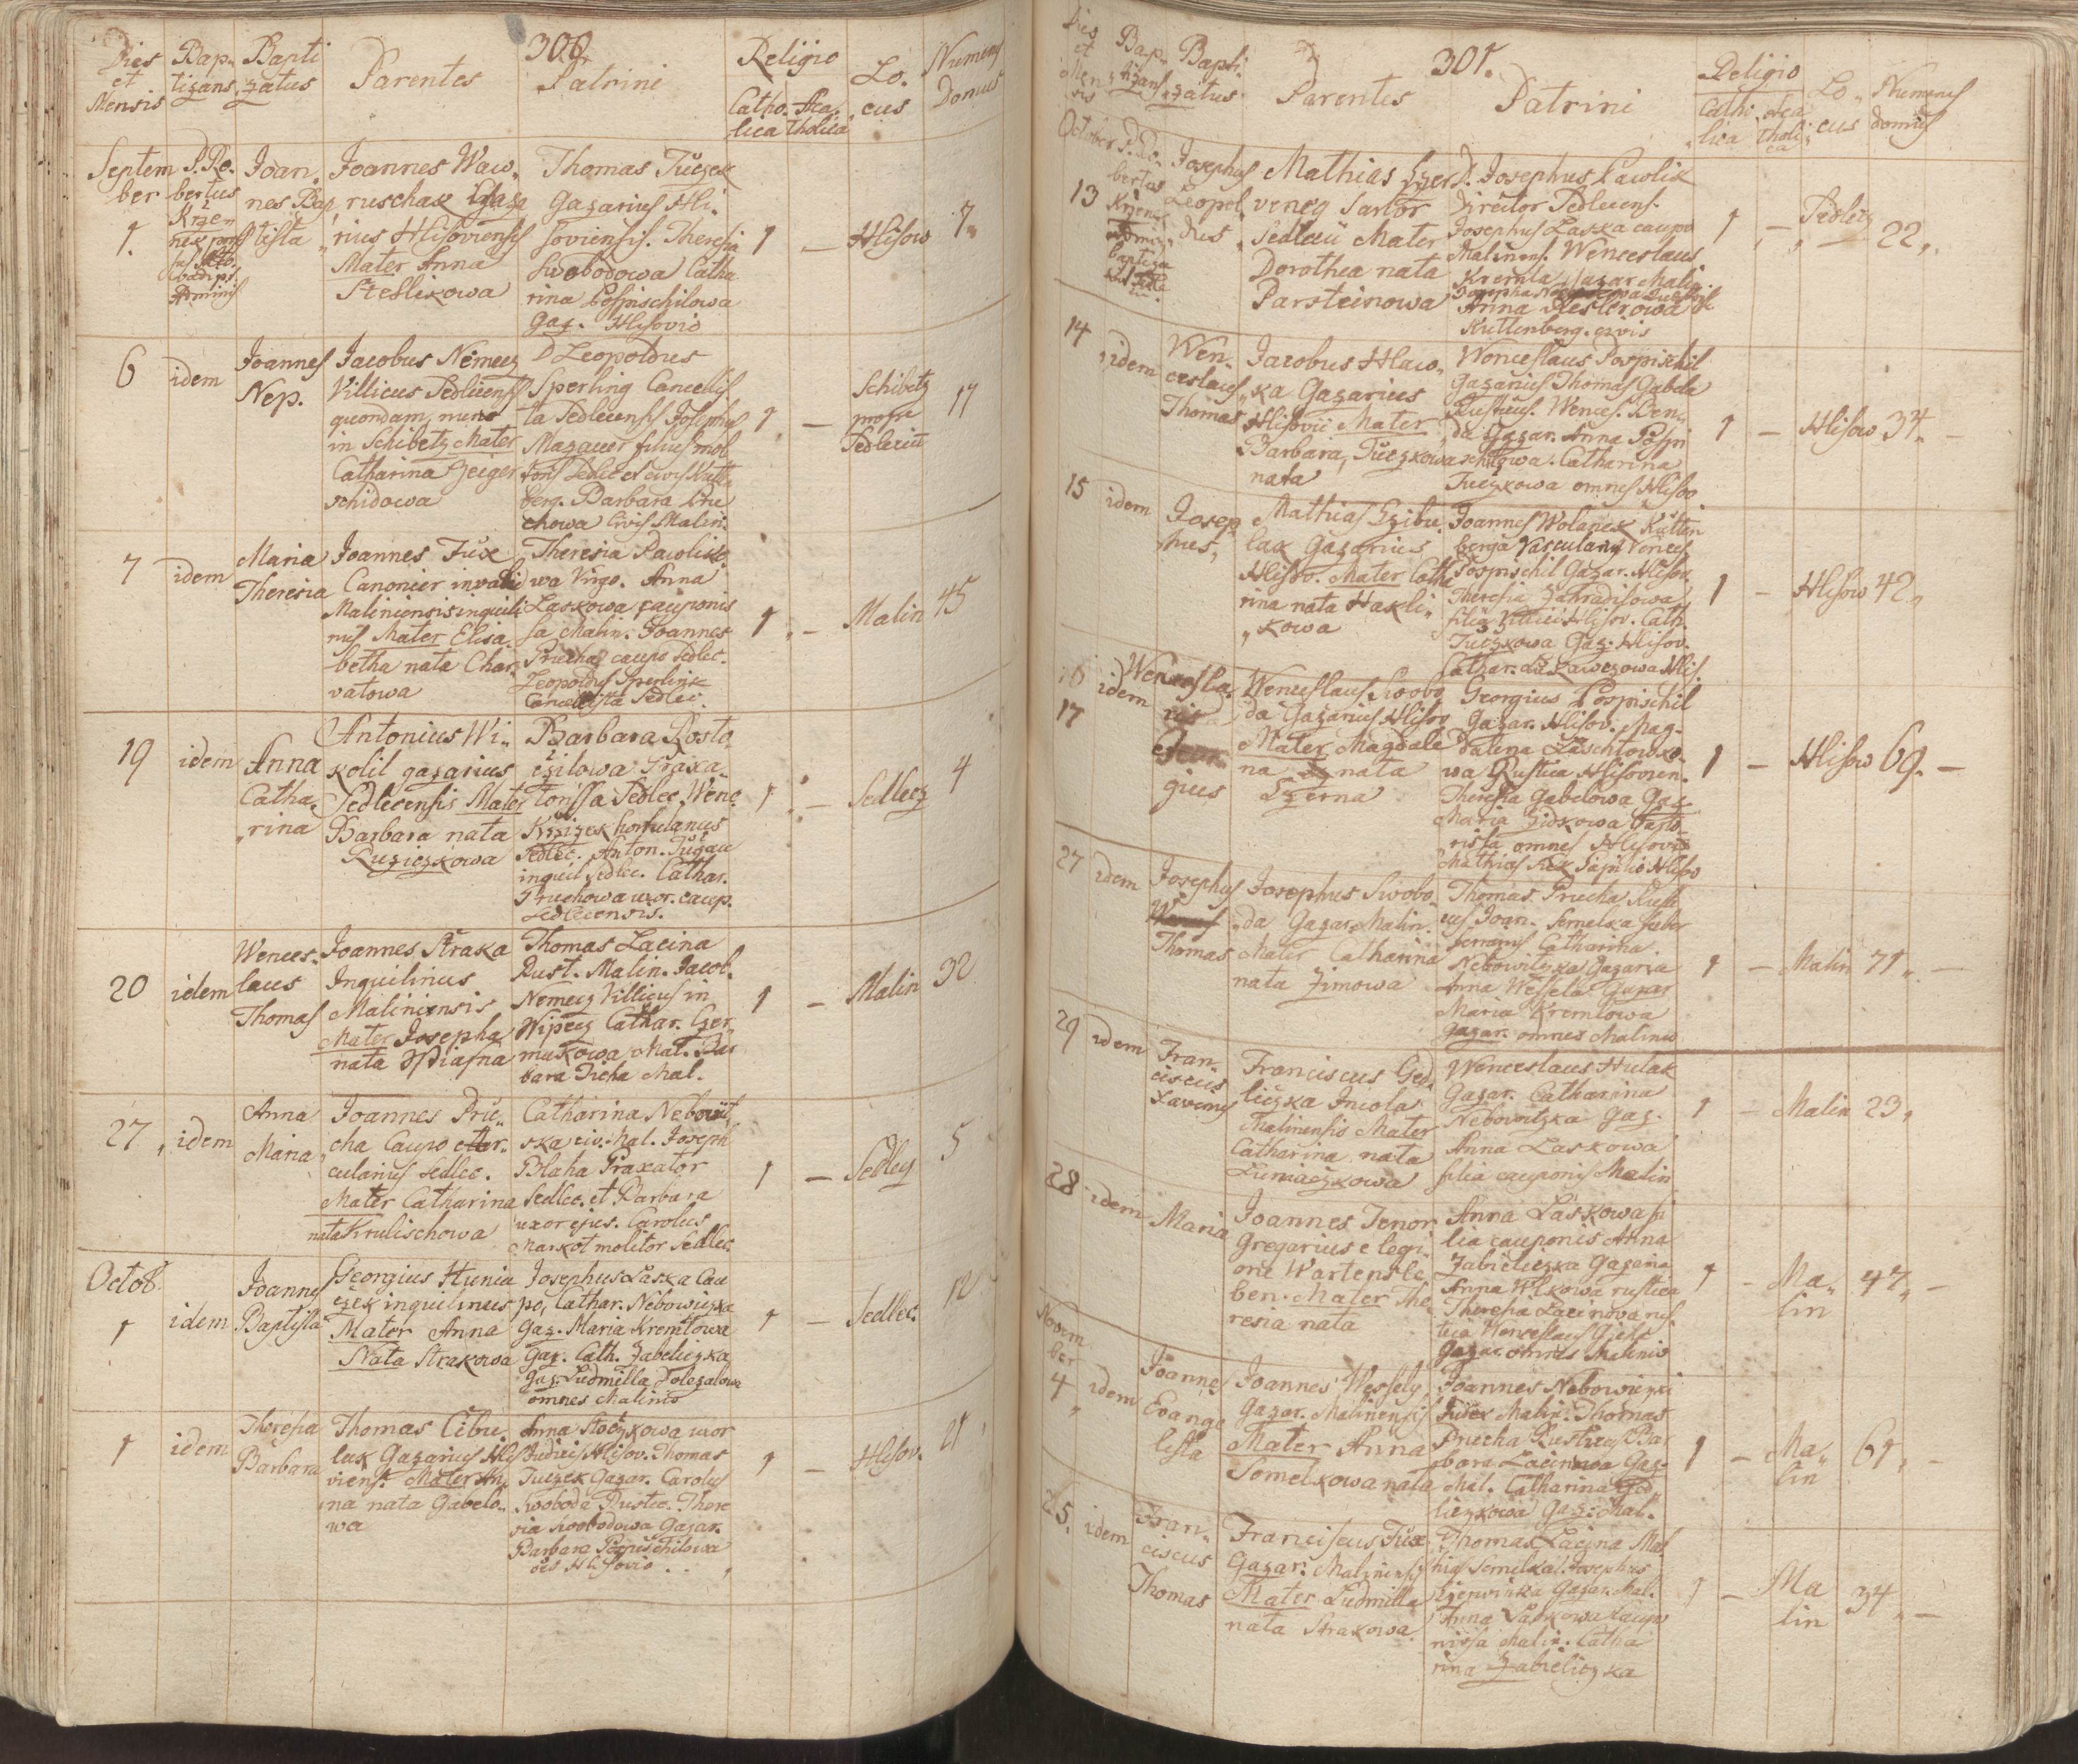 300.
Dies et Mensis
Bap-tizans
Bapti zatus
Parentes
Patrini
Religio
Catho-lica
Aca tholica
Lo. cus
Numerus Domus
Septem ber 1.
P. Ro. bertus
Joan. nes Bap tista
Joannes Waw.
ruschak Gaza
rius Hlisoviensis
Mater Anna
Steblikowa
Thomas Tuczek
Gazarius Hli.
soviensis. Theresia
Swobodowa Catha
rina Pospischilowa
Gaz. Hlisovio
1 — Hlisow 7.
6 idem
Joannes
Nep.
Jacobus Nemecz
Villicus Sedlicensis
quondam, nunc
in Schibetz Mater
Catharina
schidowa
D Leopoldus
Sperling Cancellis
ta Sedlecensis Josephus
Mazauer filius mol
berg. Barbara Pru
chowa Civis Malin.
1 — Schibetz
prope
Sedlecium
7 idem
Maria
Theresia
Joannes Fux
Canonier invalid
Maliniensis inquili
nus Mater Elisa.
betha nata Char.
vatowa
Theresia Pawlik.
wa Virgo. Anna
Laskowa cauponis
sa Malin. Joannes
Prucha caupo Sedlec.
Leopoldus Sperlink
Cancellista Sedlec.
1 — Malin 45
19 idem
Anna
Catha.
rina
Antonius Wi.
kolil gazarius
Sedlecensis Mater
Barbara nata
Ruziczkowa
Barbara Rosto.
czilowa Traxa.
torissa Sedlec. Wenc.
Krzizek hortulanus
Sedlec. Anton.
inquil Sedlec. Cathar.
Pruchowa uxor. caup.
Sedlecensis.
1 — Sedlecz 4
20 idem
Wences.
laus
Thomas
Joannes Straka
Inquilinus
Maliniensis
Mater Josepha
nata
Thomas Lacina
Rust. Malin. Jacob.
Nemecz Villicus in
Wipecz Cathar. Czer.
mukowa Mal. Bar
bara Ticha Mal.
1 — Malin 32
27 idem
Anna
Maria
Joannes Pru.
cha Caupo
Sedlec.
Mater Catharina
nata Krulischowa
Catharina Nebowit.
ska civ. Mal. Joseph
Blaha Traxator
Sedlec. et Barbara
uxor ejus. Carolus
Markot molitor Sedlec.
1 — Sedlecz 5
Octob.
1 idem
Joannes
Baptista
Georgius Hunia
czek inquilinus
Mater Anna
Nata Strakowa
Josephus Laska Cau
po, Cathar. Nebowiczka
Gaz. Maria Kremlowa
Gaz. Cath. Zabeliczka
Gaz. Ludmilla Dolezalowa
omnes Malinio
1 — Sedlec.
1 idem
Theresia
Barbara
Thomas Cibu.
lak Gazarius Hliso
viens. Mater An.
na nata Gabelo..
wa
Anna Stoczkowa uxor
Judicis Hlisov. Thomas
Tuczek Gazar. Carolus
Swoboda Rustic. There
sia Swobodowa Gazar.
Barbara Pospischilowa
oes Hlisovio..
1 — Hlisov. 21
301.
Dies et Mensis
Bap. tizans
Bapti. zatus
Parentes
Patrini
Religio
Catho. lica
Aca tholi ca
Lo. cus
Numerus domus
October
13
Josephus
Leopol.
dus
Mathias Czer
veney Sartor
Sedlecii Mater
Dorothea nata
Parsteinowa
D. Josephus Pawlik
Director Sedlecens.
Josephus Laska caupo
Malinens. Wenceslaus
Kremla Gazar Malin.
Anna
Kuttenberg. civis
1 — Sedletz 22.
14 idem
Wen.
ceslaus
Thomas
Jacobus Hlaw.
ka Gazarius
Hlisovii Mater
Barbara, Tuczkowa
nata
Wenceslaus Pospischil
Gazarius Thomas Gabela
Rusticus. Wences. Ben.
da Gazar. Anna Pospi
schilowa. Catharina
Tuczkowa omnes Hlisov
1 — Hlisow 34.
15 idem
Josep
hus,
Mathias Czibu.
lak Gazarius
Hlisov. Mater Catha
rina nata Hakli.
kowa
Joannes Wolanek Kutten
berga Vascularius Wences
Pospischil Gazar. Hlisov.
Theresia Zahradisowa
filia Villici Hlisov. Cath.
Tuczkowa Gaz. Hlisov.
1 — Hlisow 42.
16 idem
17
Wencesla.
us
gius
Wenceslaus Swobo
da Gazarius Hlisov
Mater Magdale
na nata
Czerna
Georgius Pospischil
Gazar. Hlisov. Mag.
dalena Laschtowko.
wa Rustica Hlisovien.
Theresia Gabelowa Gaz
Maria Zidkowa
omnes Hlisovio
1 — Hlisow 69. —
27 idem
Josephus
Thomas
Josephus Swobo.
da Gazar. Malin.
Mater Catharina
nata Zimowa
Thomas Prucha Rusti
cus Joan. Semelka faber
ferrarius Catharina
Nebowitzka Gazaria
Anna Wessela Gazar
Maria Kremlowa
Gazar. omnes Malinio
1 — Malin 71. —
29 idem
Fran.
ciscus
Xaverius
Franciscus Ged.
liczka Incola
Malinensis Mater
Catharina nata
Huniaczkowa
Wenceslaus Hulak
Gazar. Catharina
Nebowitzka Gaz.
Anna Laskowa
filia cauponis Malin
1 — Malin 23.
28 idem
Maria
Joannes Tenor
Gregarius e legi.
one Wartensle
ben. Mater The
resia nata
Anna Laskowa fi
lia cauponis Anna
Zabieliczka Gazaria
Anna Wlkowa rustica
Theresia Lacinova rus.
tica Wenceslaus
Gazar. omnes Malinio
1 — Ma. lin 47. —
Novem ber
4 idem
Joannes
Evange
lista
Joannes Wessely
Gazar. Malinensis
Mater Anna
Semelkowa nata
Joannes Nebowiczki
Judex Malin. Thomas
Prucha Rusticus Bar
bara Lacinowa Gaz.
Mal. Catharina Ged
liczkowa Gaz. Mal.
1 — Ma. lin 61. —
25. idem
Fran.
ciscus
Thomas
Franciscus Fux
Gazar. Malinensis
Mater Ludmilla
nata Strakowa
Thomas Lacina Mat
hias Semelka. Josephus
Czerwinka Gazar. Mal.
Anna Laskowa Caupo
nissa Malin. Catha
rina Zabieliczka
1 — Ma lin 34. —